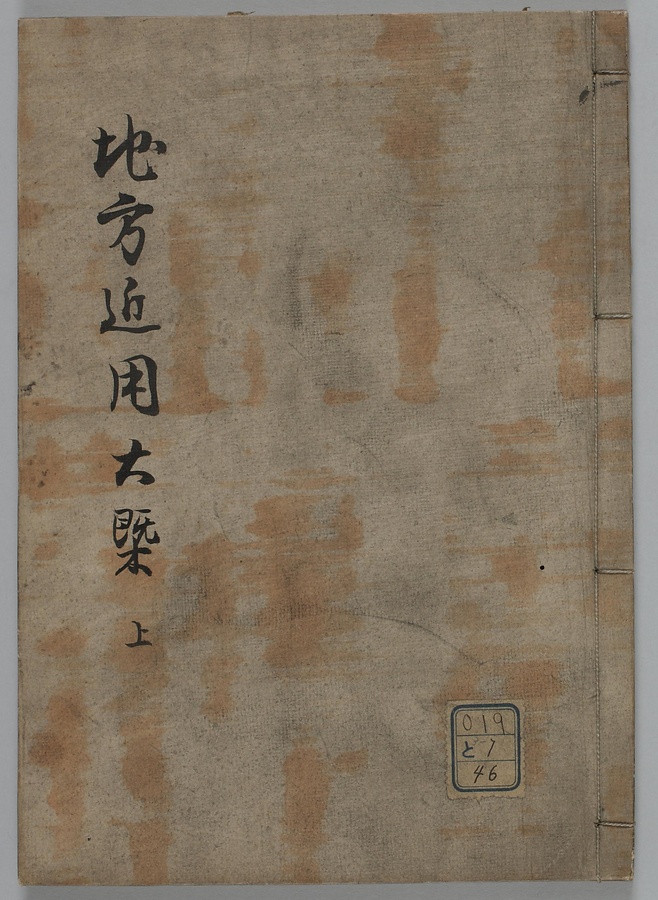 地方近用大槩 上
019
ど7
46